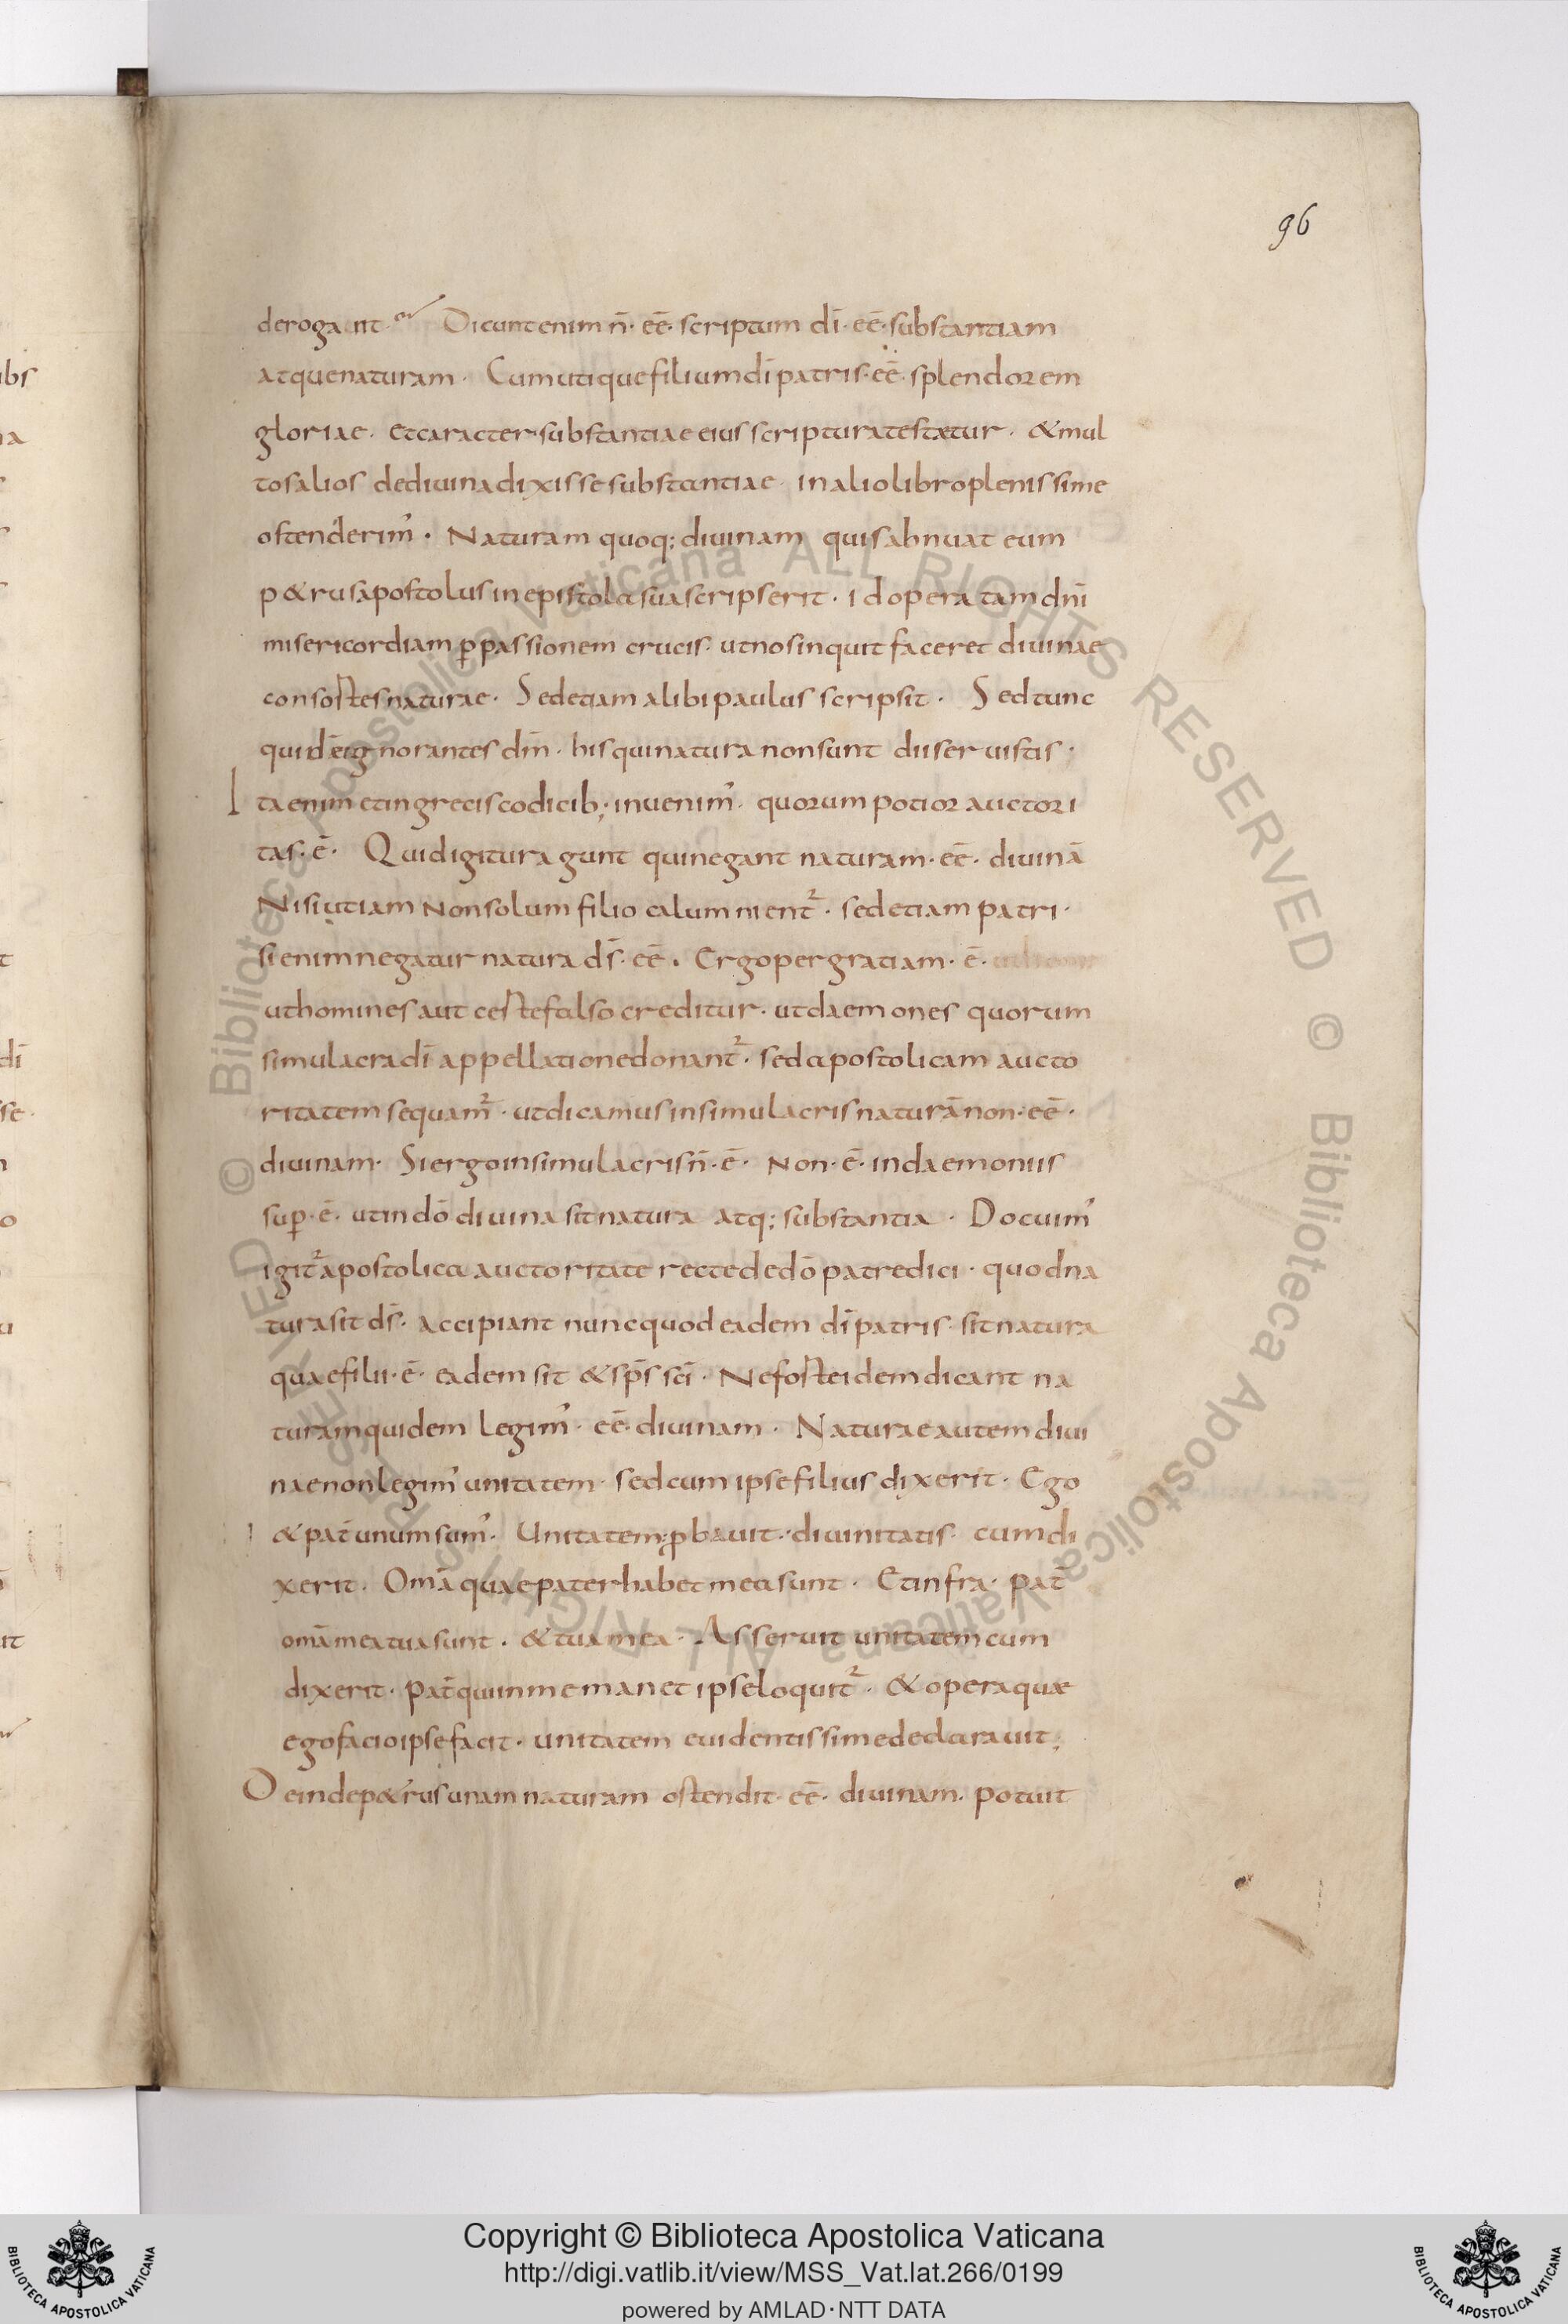 96
derogant Dicunt enim n̄· eē· scriptum dī· eē· substantiam
atque naturam· Cum utique filium dī patris· eē· splendorem
gloriae· et caracter substantiae eius scriptura testetur· & mul
tos alios de divina dixisse substantiae· in alio libro plenissime
ostenderim᾽· Naturam quoq; divinam quis abnuat cum
p&rus apostolus in epistola sua scripserit· id opera tam dn̄i
misericordiam ꝑ passionem crucis· ut nos inquit faceret divinae
consortes naturae· Sed etiam alibi paulus scripsit· Sed tunc
quidē ignorantes dm̄· his qui natura non sunt dii servistis·
Ita enim et in grecis codicib; invenim᾽· quorum potior auctori
tas· ē· Quid igitur agunt qui negant naturam· eē· divinā
Nisi utiam non solum filio calumnient᷑· sed etiam patri·
si enim negatur natura ds̄· eē· Ergo per gratiam· ē·
ut homines aut certe falso creditur· ut daemones quorum
simulacra dī appellatione donant᷑· sed apostolicam aucto
ritatem sequam᷑· ut dicamus in simulacris naturā non· eē·
divinam· Si ergo in simulacris n̄· ē· Non· ē· in daemoniis
suꝑ· ē· ut in dō divina sit natura atq; substantia· Docuim᾽
igit᷑ apostolica auctoritate recte de dō patre dici· quod na
tura sit ds̄· accipiant nunc quod eadem dī patris· sit natura
quae filii· ē· eadem sit & sps̄ scī· Ne forte idem dicant na
turam quidem legim᾽· eē· divinam· Naturae autem divi
nae non legim᾽ unitatem· sed cum ipse filius dixerit· Ego
& pat̄ unum sum᾽· Unitatem ꝓbavit· divinitatis· cum di
xerit· Omā quae pater habet mea sunt· Et infra· pat̄
omā mea tua sunt· & tua mea· Asseruit unitatem cum
dixerit· pat̄ qui in me manet ipse loquit᷑· & opera quae
ego facio ipse facit· unitatem evidentissime declaravit;
Deinde p&rus unam naturam ostendit· eē· divinam· potuit
ibs
dī
sse·
© Biblioteca Apostolica Vaticana ALL RIGHTS RESERVED © Biblioteca Apostolica Vaticana ALL RIGHTS RESERVED
Copyright © Biblioteca Apostolica Vaticana
http://digi.vatlib.it/view/MSS_Vat.lat.266/0199
powered by AMLAD·NTT DATA
BIBLIOTECA APOSTOLICA VATICANA
BIBLIOTECA APOSTOLICA VATICANA